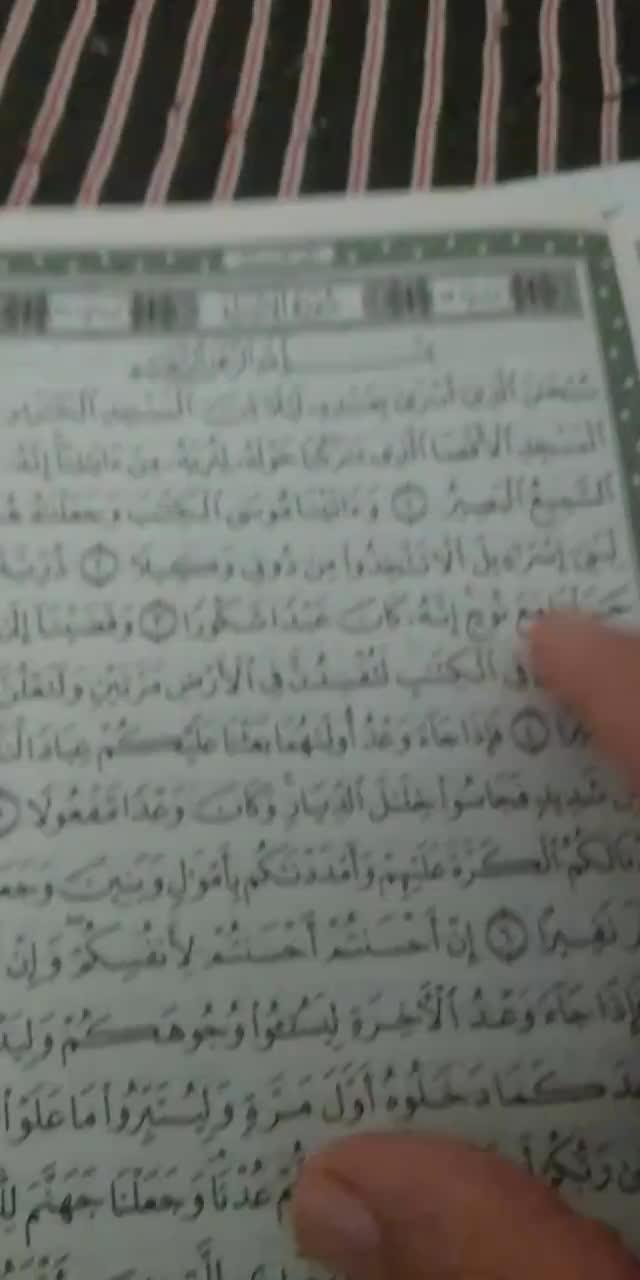 سُورَةُ الإِسْرَاءِ
سُبْحَٰنَ ٱلَّذِىٓ أَسْرَىٰ بِعَبْدِهِۦ لَيْلًا مِّنَ ٱلْمَسْجِدِ ٱلْحَرَامِ
ٱلْمَسْجِدِ ٱلْأَقْصَا ٱلَّذِى بَٰرَكْنَا حَوْلَهُۥ لِنُرِيَهُۥ مِنْ ءَايَٰتِنَآ إِنَّهُۥ
ٱلسَّمِيعُ ٱلْبَصِيرُ ١ وَءَاتَيْنَا مُوسَى ٱلْكِتَٰبَ وَجَعَلْنَٰهُ
لِّبَنِىٓ إِسْرَٰٓءِيلَ أَلَّا تَتَّخِذُوا۟ مِن دُونِى وَكِيلًا ٢ ذُرِّيَّةَ
حَمَلْنَا مَعَ نُوحٍ إِنَّهُۥ كَانَ عَبْدًا شَكُورًا ٣ وَقَضَيْنَآ إِلَىٰ
فِى ٱلْكِتَٰبِ لَتُفْسِدُنَّ فِى ٱلْأَرْضِ مَرَّتَيْنِ وَلَتَعْلُنَّ
٤ فَإِذَا جَآءَ وَعْدُ أُولَىٰهُمَا بَعَثْنَا عَلَيْكُمْ عِبَادًا
شَدِيدٍ فَجَاسُوا۟ خِلَٰلَ ٱلدِّيَارِ وَكَانَ وَعْدًا مَّفْعُولًا
لَكُمُ ٱلْكَرَّةَ عَلَيْهِمْ وَأَمْدَدْنَٰكُم بِأَمْوَٰلٍ وَبَنِينَ
نَفِيرًا ٦ إِنْ أَحْسَنتُمْ أَحْسَنتُمْ لِأَنفُسِكُمْ وَإِنْ
فَإِذَا جَآءَ وَعْدُ ٱلْءَاخِرَةِ لِيَسُۥٓـُٔوا۟ وُجُوهَكُمْ
كَمَا دَخَلُوهُ أَوَّلَ مَرَّةٍ وَلِيُتَبِّرُوا۟ مَا عَلَوْا۟
رَبُّكُمْ عُدْنَا وَجَعَلْنَا جَهَنَّمَ